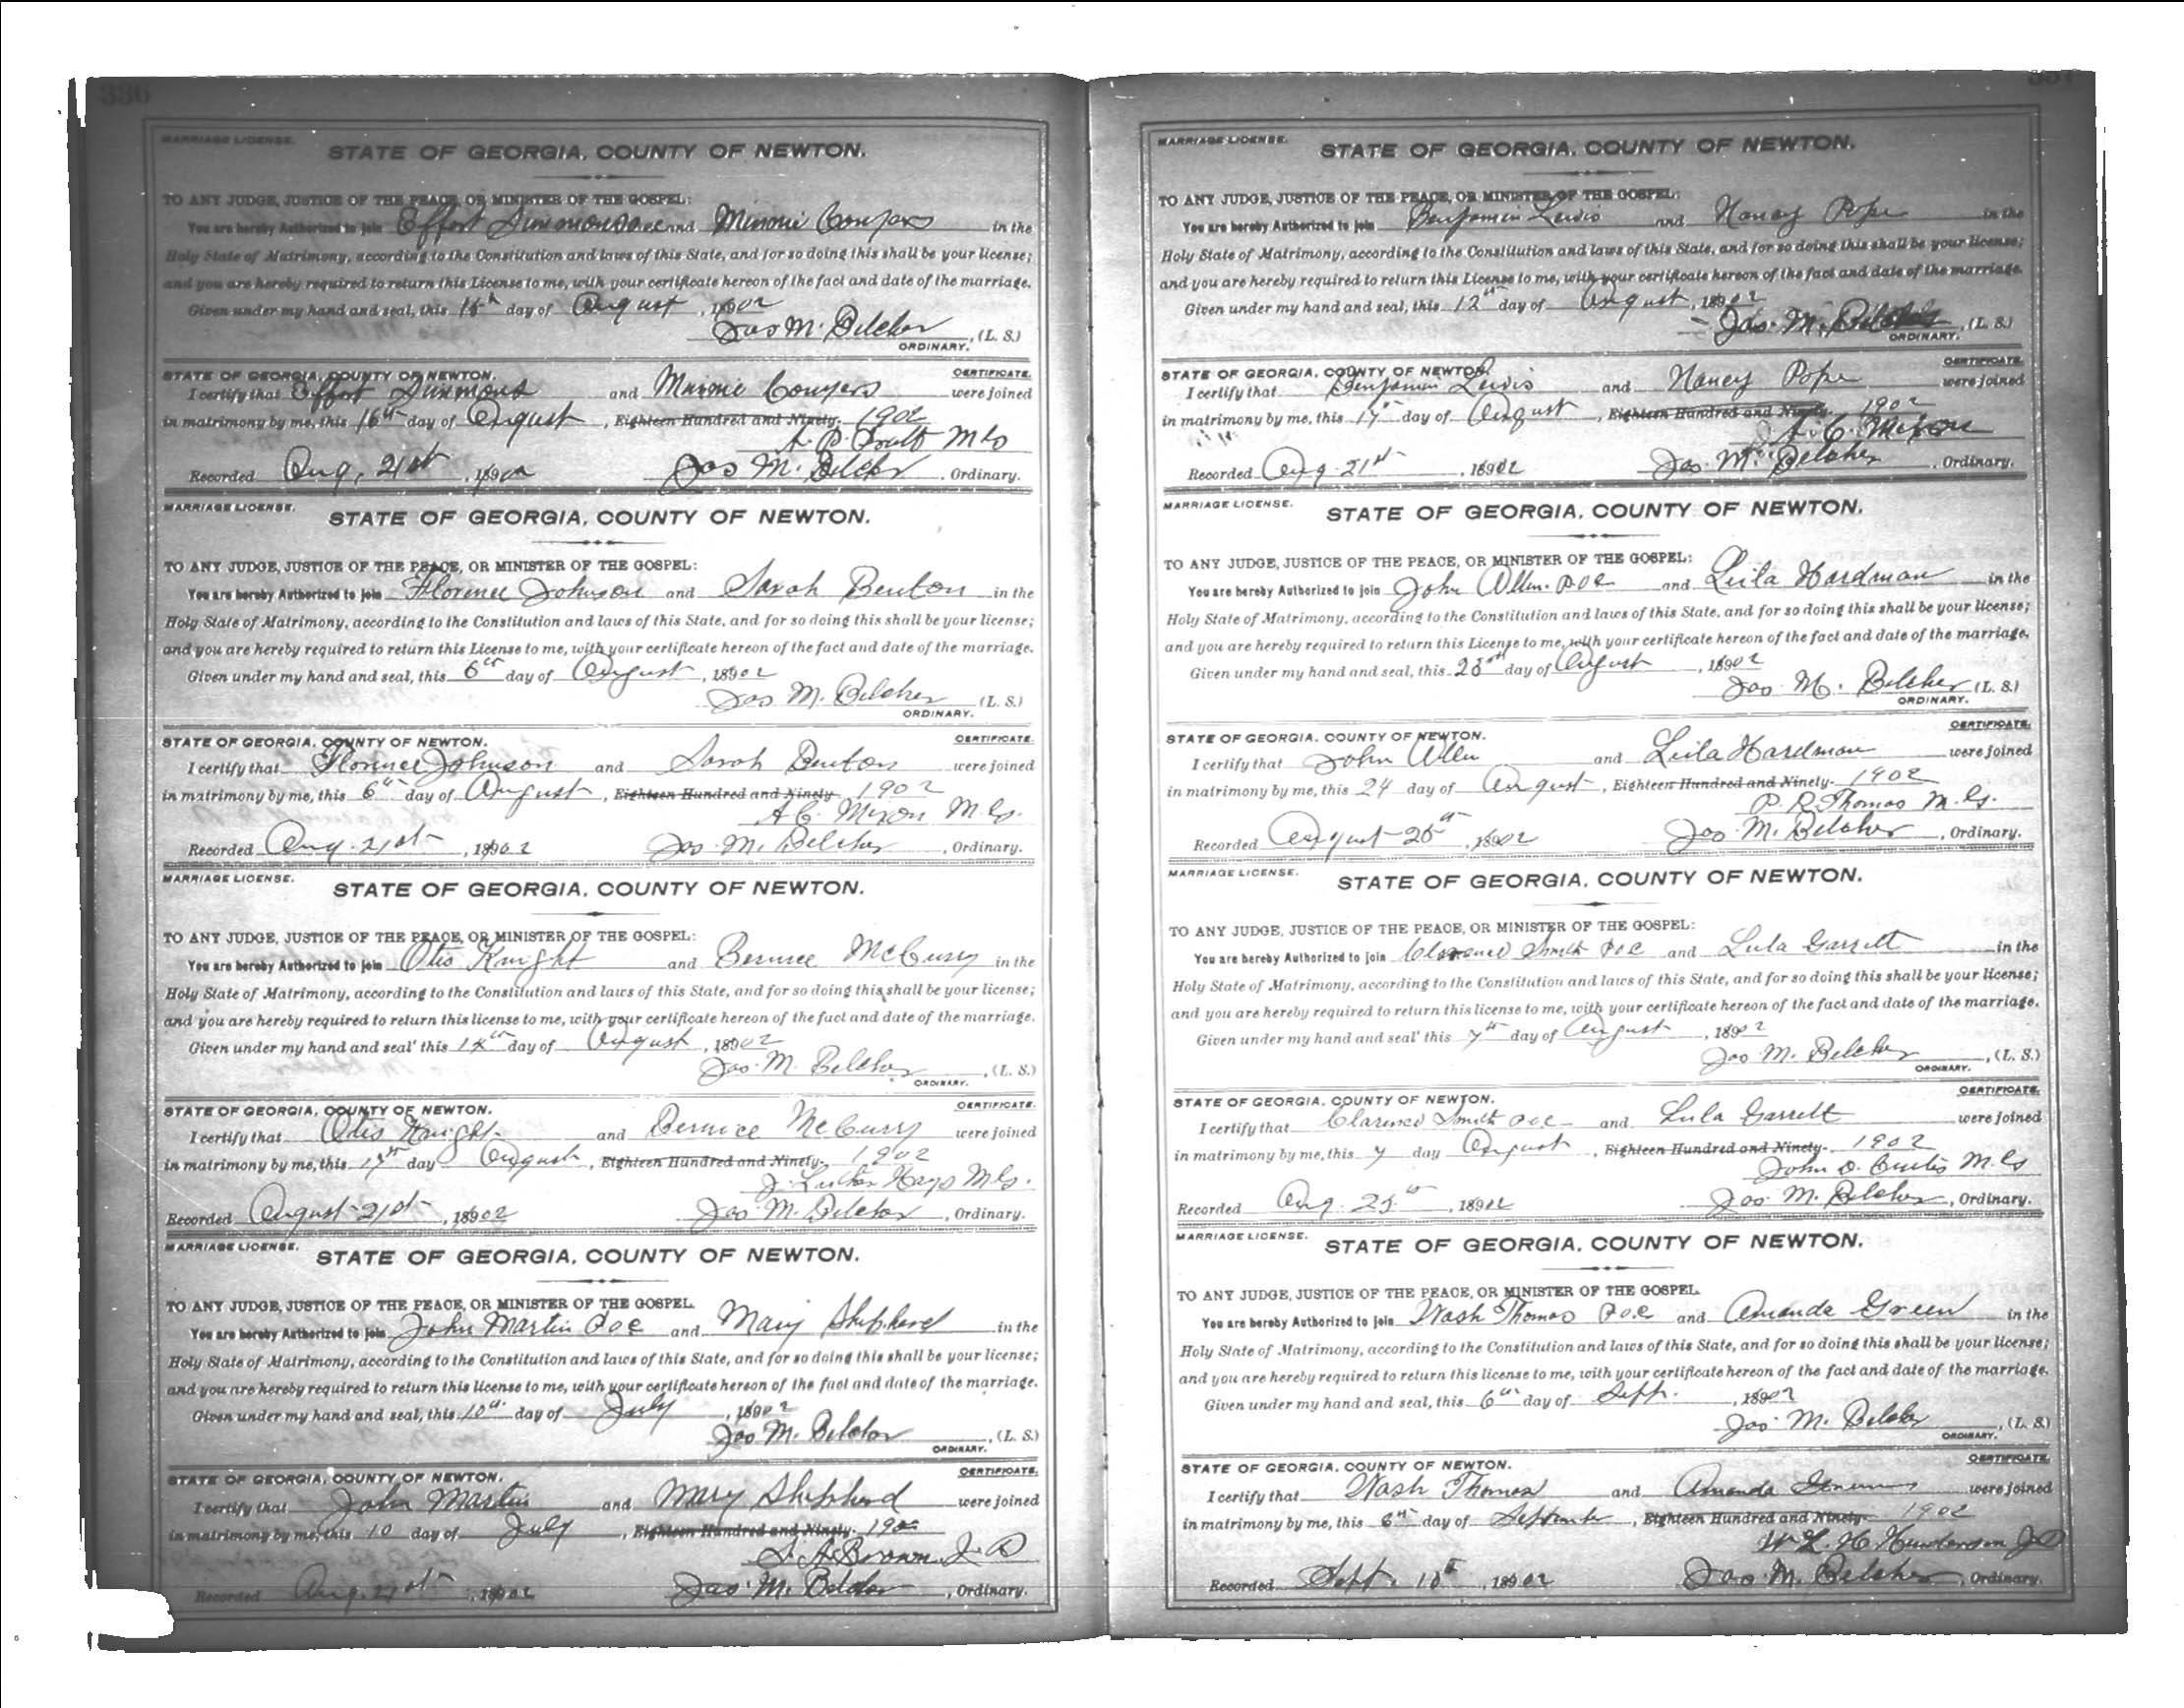 336
MARRIAGE LICENSE.
STATE OF GEORGIA, COUNTY OF NEWTON.
TO ANY JUDGE, JUSTICE OF THE PEACE, OR MINISTER OF THE GOSPEL:
You are hereby Authorized to join Effort Simmons and Minnie Conyers in the
Holy State of Matrimony, according to the Constitution and laws of this State, and for so doing this shall be your license;
and you are hereby required to return this License to me, with your certificate hereon of the fact and date of the marriage.
Given under my hand and seal, this day of August, 1902
Jas M. Belcher, (L. S.)
ORDINARY.
STATE OF GEORGIA, COUNTY OF NEWTON. CERTIFICATE.
I certify that Effort Simmons and Minnie Conyers were joined
in matrimony by me, this 16th day of August, Eighteen Hundred and Ninety- 1902
Recorded Aug. 21st, 1902 Jas M. Belcher, Ordinary.
MARRIAGE LICENSE.
STATE OF GEORGIA, COUNTY OF NEWTON.
TO ANY JUDGE, JUSTICE OF THE PEACE, OR MINISTER OF THE GOSPEL:
You are hereby Authorized to join Florence Johnson and Sarah Benton in the
Holy State of Matrimony, according to the Constitution and laws of this State, and for so doing this shall be your license;
and you are hereby required to return this License to me, with your certificate hereon of the fact and date of the marriage.
Given under my hand and seal, this 6th day of August, 1902
Jas M. Belcher (L. S.)
ORDINARY.
STATE OF GEORGIA, COUNTY OF NEWTON. CERTIFICATE.
I certify that Florence Johnson and Sarah Benton were joined
in matrimony by me, this 6th day of August, Eighteen Hundred and Ninety- 1902
A. C. Mixon M.G.
Recorded Aug. 21st, 1902 Jas. M. Belcher, Ordinary.
MARRIAGE LICENSE.
STATE OF GEORGIA, COUNTY OF NEWTON.
TO ANY JUDGE, JUSTICE OF THE PEACE, OR MINISTER OF THE GOSPEL:
You are hereby Authorized to join Otis Knight and Bernice McCurry in the
Holy State of Matrimony, according to the Constitution and laws of this State, and for so doing this shall be your license;
and you are hereby required to return this license to me, with your certificate hereon of the fact and date of the marriage.
Given under my hand and seal' this day of August, 1902
Jas. M. Belcher, (L. S.)
ORDINARY.
STATE OF GEORGIA, COUNTY OF NEWTON. CERTIFICATE.
I certify that Otis Knight and Bernice McCurry were joined
in matrimony by me, this 17th day August, Eighteen Hundred and Ninety- 1902
J. Luther Hays M.G.
Recorded August 21st, 1902 Jas. M. Belcher, Ordinary.
MARRIAGE LICENSE.
STATE OF GEORGIA, COUNTY OF NEWTON.
TO ANY JUDGE, JUSTICE OF THE PEACE, OR MINISTER OF THE GOSPEL.
You are hereby Authorized to join John Martin P.O.C and Mary Shepherd in the
Holy State of Matrimony, according to the Constitution and laws of this State, and for so doing this shall be your license;
and you are hereby required to return this license to me, with your certificate hereon of the fact and date of the marriage.
Given under my hand and seal, this 10th day of July, 1902
Jas M. Belcher, (L. S.)
ORDINARY.
STATE OF GEORGIA, COUNTY OF NEWTON. CERTIFICATE.
I certify that John Martin and Mary Shepherd were joined
in matrimony by me, this 10 day of July, Eighteen Hundred and Ninety- 1902
Brown J.P
Recorded Aug. 21st, 1902 Jas. M. Belcher, Ordinary.
337
MARRIAGE LICENSE.
STATE OF GEORGIA, COUNTY OF NEWTON.
TO ANY JUDGE, JUSTICE OF THE PEACE, OR MINISTER OF THE GOSPEL:
You are hereby Authorized to join Benjamin Lewis and Nancy Pope in the
Holy State of Matrimony, according to the Constitution and laws of this State, and for so doing this shall be your license;
and you are hereby required to return this License to me, with your certificate hereon of the fact and date of the marriage.
Given under my hand and seal, this 12th day of August, 1902
Jas. M. Belcher, (L. S.)
ORDINARY.
STATE OF GEORGIA, COUNTY OF NEWTON. CERTIFICATE.
I certify that Benjamin Lewis and Nancy Pope were joined
in matrimony by me, this 17th day of August, Eighteen Hundred and Ninety- 1902
A. C. Mixon
Recorded Aug. 21st, 1902 Jas. M. Belcher, Ordinary.
MARRIAGE LICENSE.
STATE OF GEORGIA, COUNTY OF NEWTON.
TO ANY JUDGE, JUSTICE OF THE PEACE, OR MINISTER OF THE GOSPEL:
You are hereby Authorized to join John Allen P.O.C and Leila Hardman in the
Holy State of Matrimony, according to the Constitution and laws of this State, and for so doing this shall be your license;
and you are hereby required to return this License to me, with your certificate hereon of the fact and date of the marriage.
Given under my hand and seal, this 23rd day of August, 1902
Jas. M. Belcher (L. S.)
ORDINARY.
STATE OF GEORGIA, COUNTY OF NEWTON. CERTIFICATE.
I certify that John Allen and Leila Hardman were joined
in matrimony by me, this 24 day of August, Eighteen Hundred and Ninety- 1902
P. R. Thomas M.G.
Recorded August 25th, 1902 Jas. M. Belcher, Ordinary.
MARRIAGE LICENSE.
STATE OF GEORGIA, COUNTY OF NEWTON.
TO ANY JUDGE, JUSTICE OF THE PEACE, OR MINISTER OF THE GOSPEL:
You are hereby Authorized to join Clarence Smith P.O.C and Lula Garrett in the
Holy State of Matrimony, according to the Constitution and laws of this State, and for so doing this shall be your license;
and you are hereby required to return this license to me, with your certificate hereon of the fact and date of the marriage.
Given under my hand and seal' this 7th day of August, 1902
Jas. M. Belcher, (L. S.)
ORDINARY.
STATE OF GEORGIA, COUNTY OF NEWTON. CERTIFICATE.
I certify that Clarence Smith P.O.C and Lula Garrett were joined
in matrimony by me, this 7 day August, Eighteen Hundred and Ninety- 1902
John D. Curtis M.G
Recorded Aug. 25th, 1902 Jas. M. Belcher, Ordinary.
MARRIAGE LICENSE.
STATE OF GEORGIA, COUNTY OF NEWTON.
TO ANY JUDGE, JUSTICE OF THE PEACE, OR MINISTER OF THE GOSPEL.
You are hereby Authorized to join Wash Thomas P.O.C and Amanda Green in the
Holy State of Matrimony, according to the Constitution and laws of this State, and for so doing this shall be your license;
and you are hereby required to return this License to me, with your certificate hereon of the fact and date of the marriage.
Given under my hand and seal, this 6th day of Sept., 1902
Jas. M. Belcher, (L. S.)
ORDINARY.
STATE OF GEORGIA, COUNTY OF NEWTON. CERTIFICATE.
I certify that Wash Thomas and Amanda were joined
in matrimony by me, this 6th day of September, Eighteen Hundred and Ninety- 1902
Henderson J.P
Recorded Sept. 1902 Jas. M. Belcher, Ordinary.